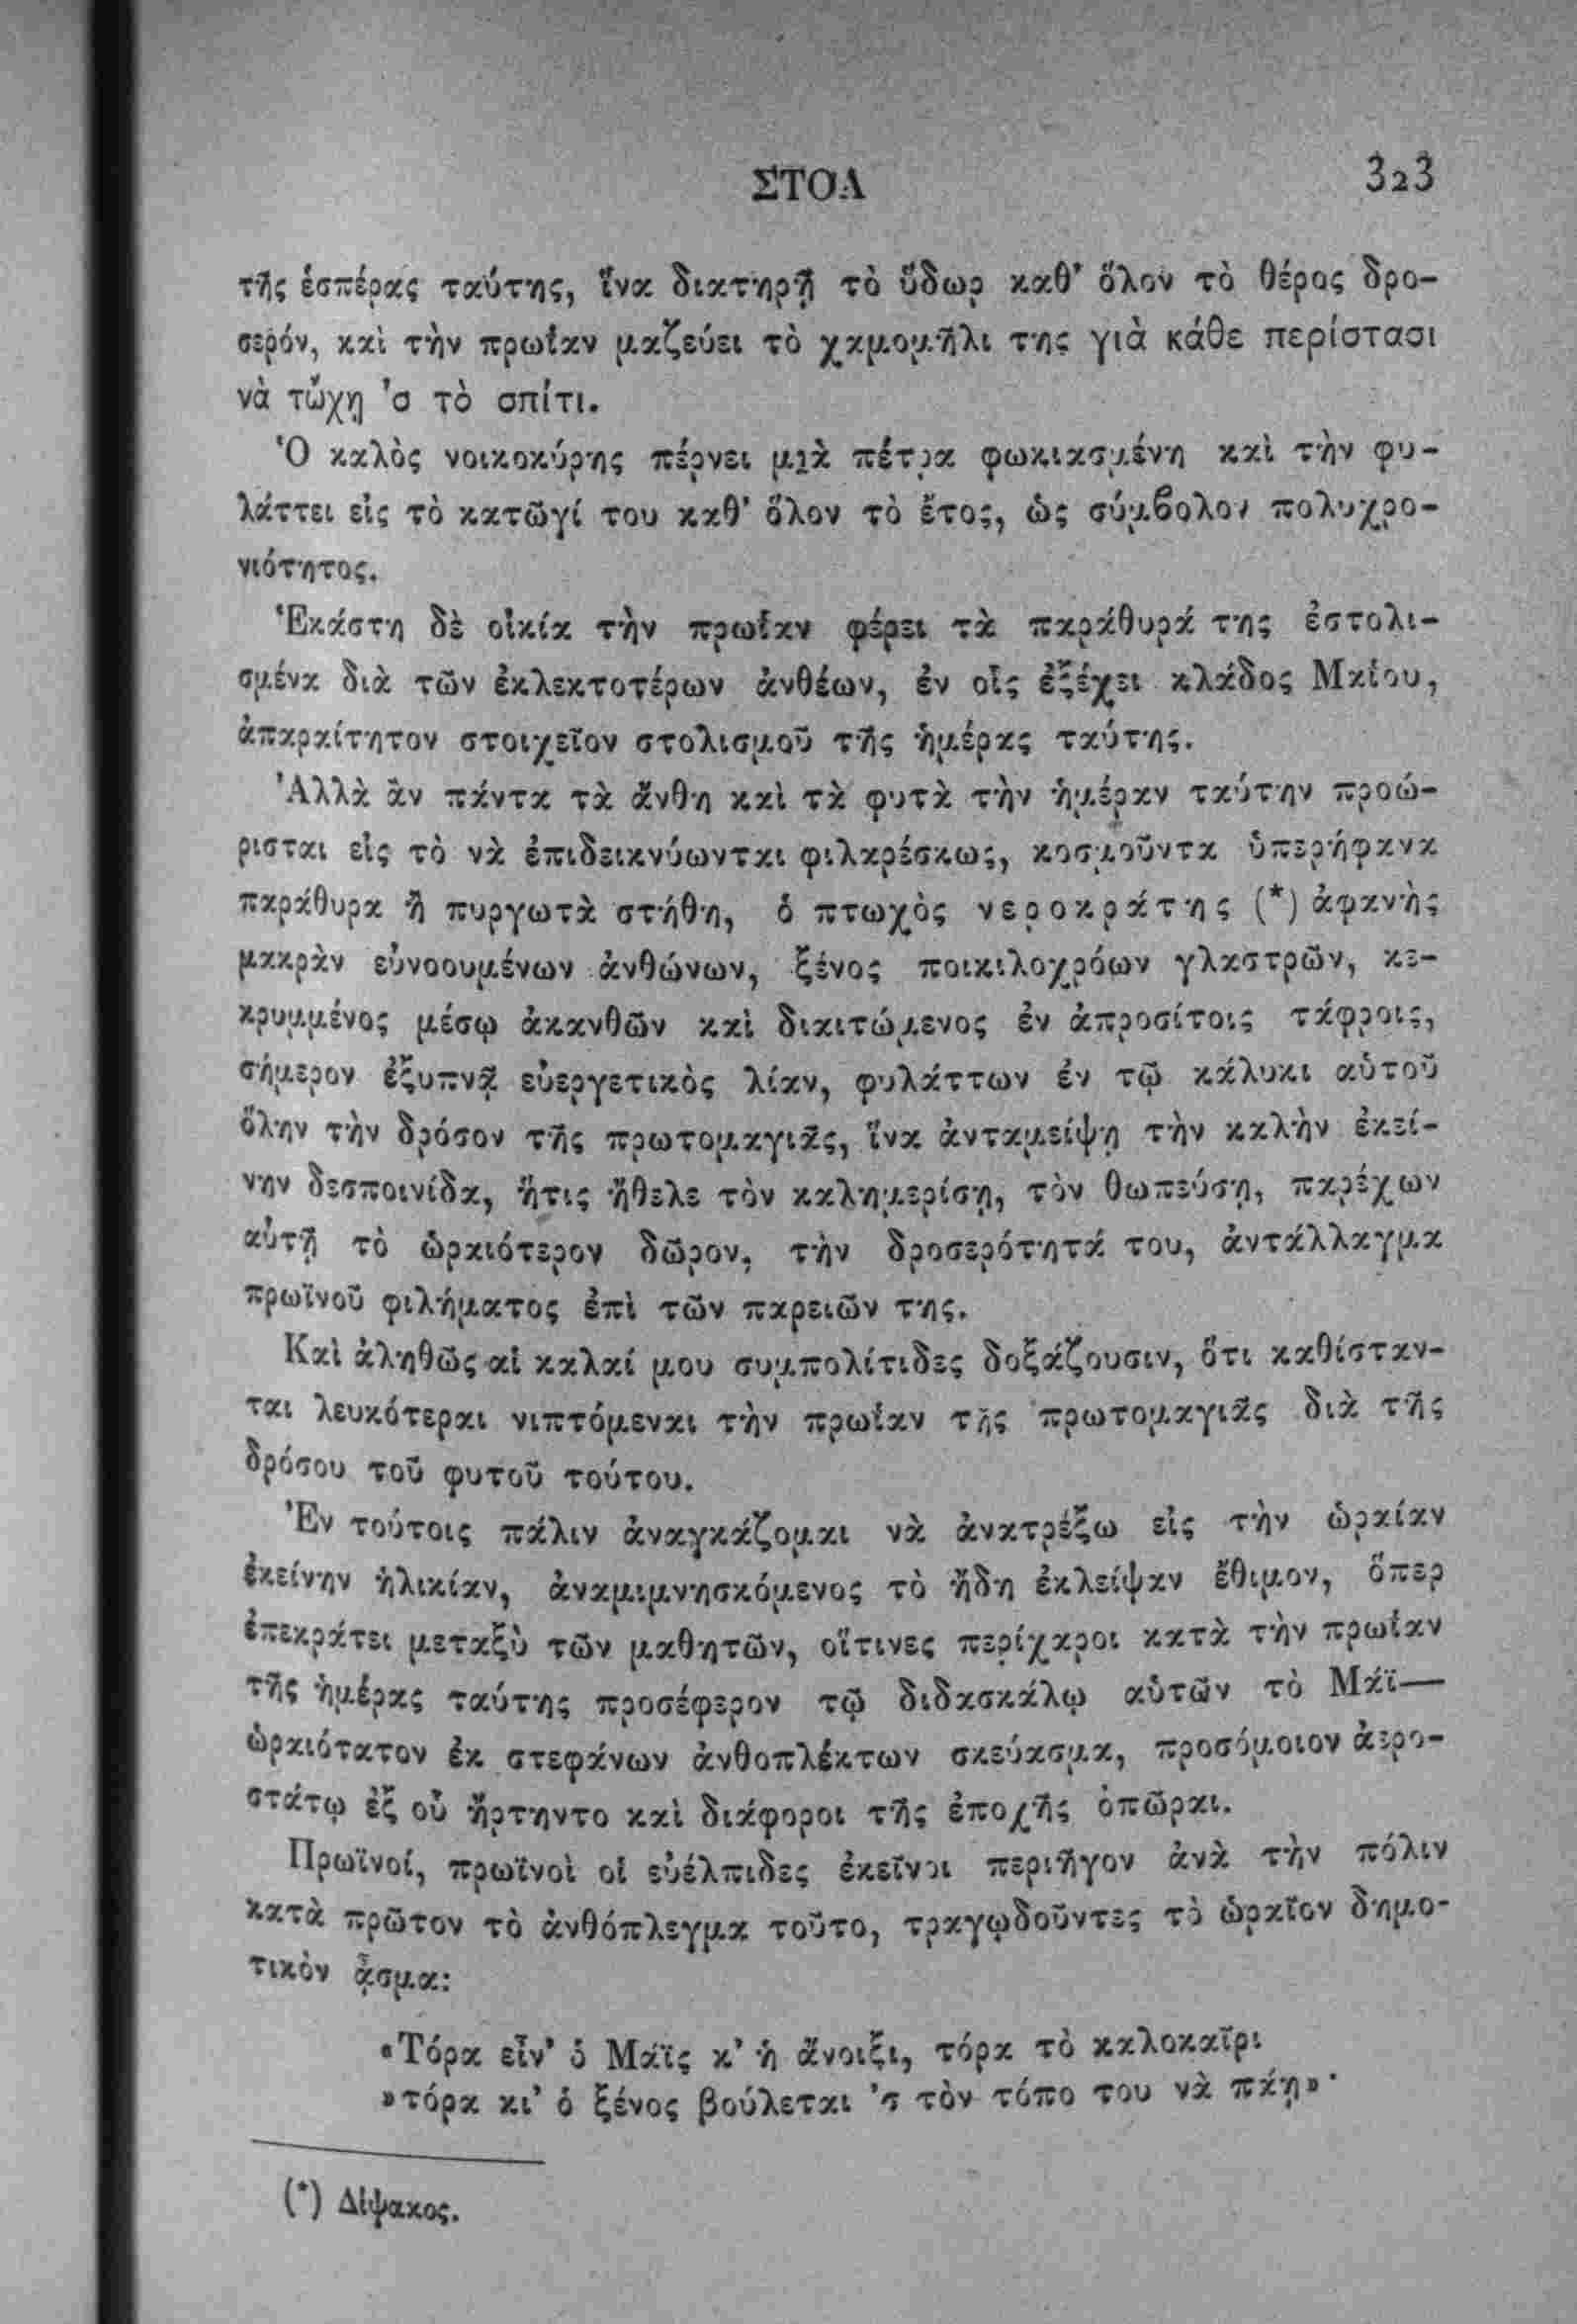 ΣΤΟΑ 323
τῆς ἑσπέρας ταύτης, ἵνα διατηρῇ τὸ ὕδωρ καθ' ὅλον τὸ θέρος δρο-
σερόν, καὶ τὴν πρωΐαν μαζεύει τὸ χαμομῆλι της γιὰ κάθε περίστασι
νὰ τὤχῃ 'σ τὸ σπίτι.
Ὁ καλὸς νοικοκύρης πέρνει μιὰ πέτρα φωκιασμένη καὶ τὴν φυ-
λάττει εἰς τὸ κατῶγί του καθ' ὅλον τὸ ἔτος, ὡς σύμβολον πολυχρο-
νιότητος.
Ἑκάστη δὲ οἰκία τὴν πρωΐαν φέρει τὰ παράθυρά της ἐστολι-
σμένα διὰ τῶν ἐκλεκτοτέρων ἀνθέων, ἐν οἷς ἐξέχει κλάδος Μαΐου,
ἀπαραίτητον στοιχεῖον στολισμοῦ τῆς ἡμέρας ταύτης.
Ἀλλὰ ἂν πάντα τὰ ἄνθη καὶ τὰ φυτὰ τὴν ἡμέραν ταύτην προώ-
ρισται εἰς τὸ νὰ ἐπιδεικνύωνται φιλαρέσκως, κοσμοῦντα ὑπερήφανα
παράθυρα ἢ πυργωτὰ στήθη, ὁ πτωχὸς νεροκράτης (*) ἀφανὴς
μακρὰν εὐνοουμένων ἀνθώνων, ξένος ποικιλοχρόων γλαστρῶν, κε-
κρυμμένος μέσῳ ἀκανθῶν καὶ διαιτώμενος ἐν ἀπροσίτοις τάφροις,
σήμερον ἐξυπνᾷ εὐεργετικὸς λίαν, φυλάττων ἐν τῷ κάλυκι αὑτοῦ
ὅλην τὴν δρόσον τῆς πρωτομαγιᾶς, ἵνα ἀνταμείψῃ τὴν καλὴν ἐκεί-
νην δεσποινίδα, ἥτις ἤθελε τὸν καλημερίσῃ, τὸν θωπεύσῃ, παρέχων
αὐτῇ τὸ ὡραιότερον δῶρον, τὴν δροσερότητά του, ἀντάλλαγμα
πρωϊνοῦ φιλήματος ἐπὶ τῶν παρειῶν της.
Καὶ ἀληθῶς αἱ καλαί μου συμπολίτιδες δοξάζουσιν, ὅτι καθίσταν-
ται λευκότεραι νιπτόμεναι τὴν πρωΐαν τῆς πρωτομαγιᾶς διὰ τῆς
δρόσου τοῦ φυτοῦ τούτου.
Ἐν τούτοις πάλιν ἀναγκάζομαι νὰ ἀνατρέξω εἰς τὴν ὡραίαν
ἐκείνην ἡλικίαν, ἀναμιμνησκόμενος τὸ ἤδη ἐκλείψαν ἔθιμον, ὅπερ
ἐπεκράτει μεταξὺ τῶν μαθητῶν, οἵτινες περίχαροι κατὰ τὴν πρωΐαν
τῆς ἡμέρας ταύτης προσέφερον τῷ διδασκάλῳ αὑτῶν τὸ Μάϊ—
ὡραιότατον ἐκ στεφάνων ἀνθοπλέκτων σκεύασμα, προσόμοιον ἀερο-
στάτῳ ἐξ οὗ ἤρτηντο καὶ διάφοροι τῆς ἐποχῆς ὀπῶραι.
Πρωϊνοί, πρωϊνοὶ οἱ εὐέλπιδες ἐκεῖνοι περιῆγον ἀνὰ τὴν πόλιν
κατὰ πρῶτον τὸ ἀνθόπλεγμα τοῦτο, τραγῳδοῦντες τὸ ὡραῖον δημο-
τικὸν ᾆσμα:
«Τόρα εἶν' ὁ Μάϊς κ' ἡ ἄνοιξι, τόρα τὸ καλοκαῖρι
»τόρα κι' ὁ ξένος βούλεται 'ς τὸν τόπο του νὰ πάῃ»·
(*) Δίψακος.